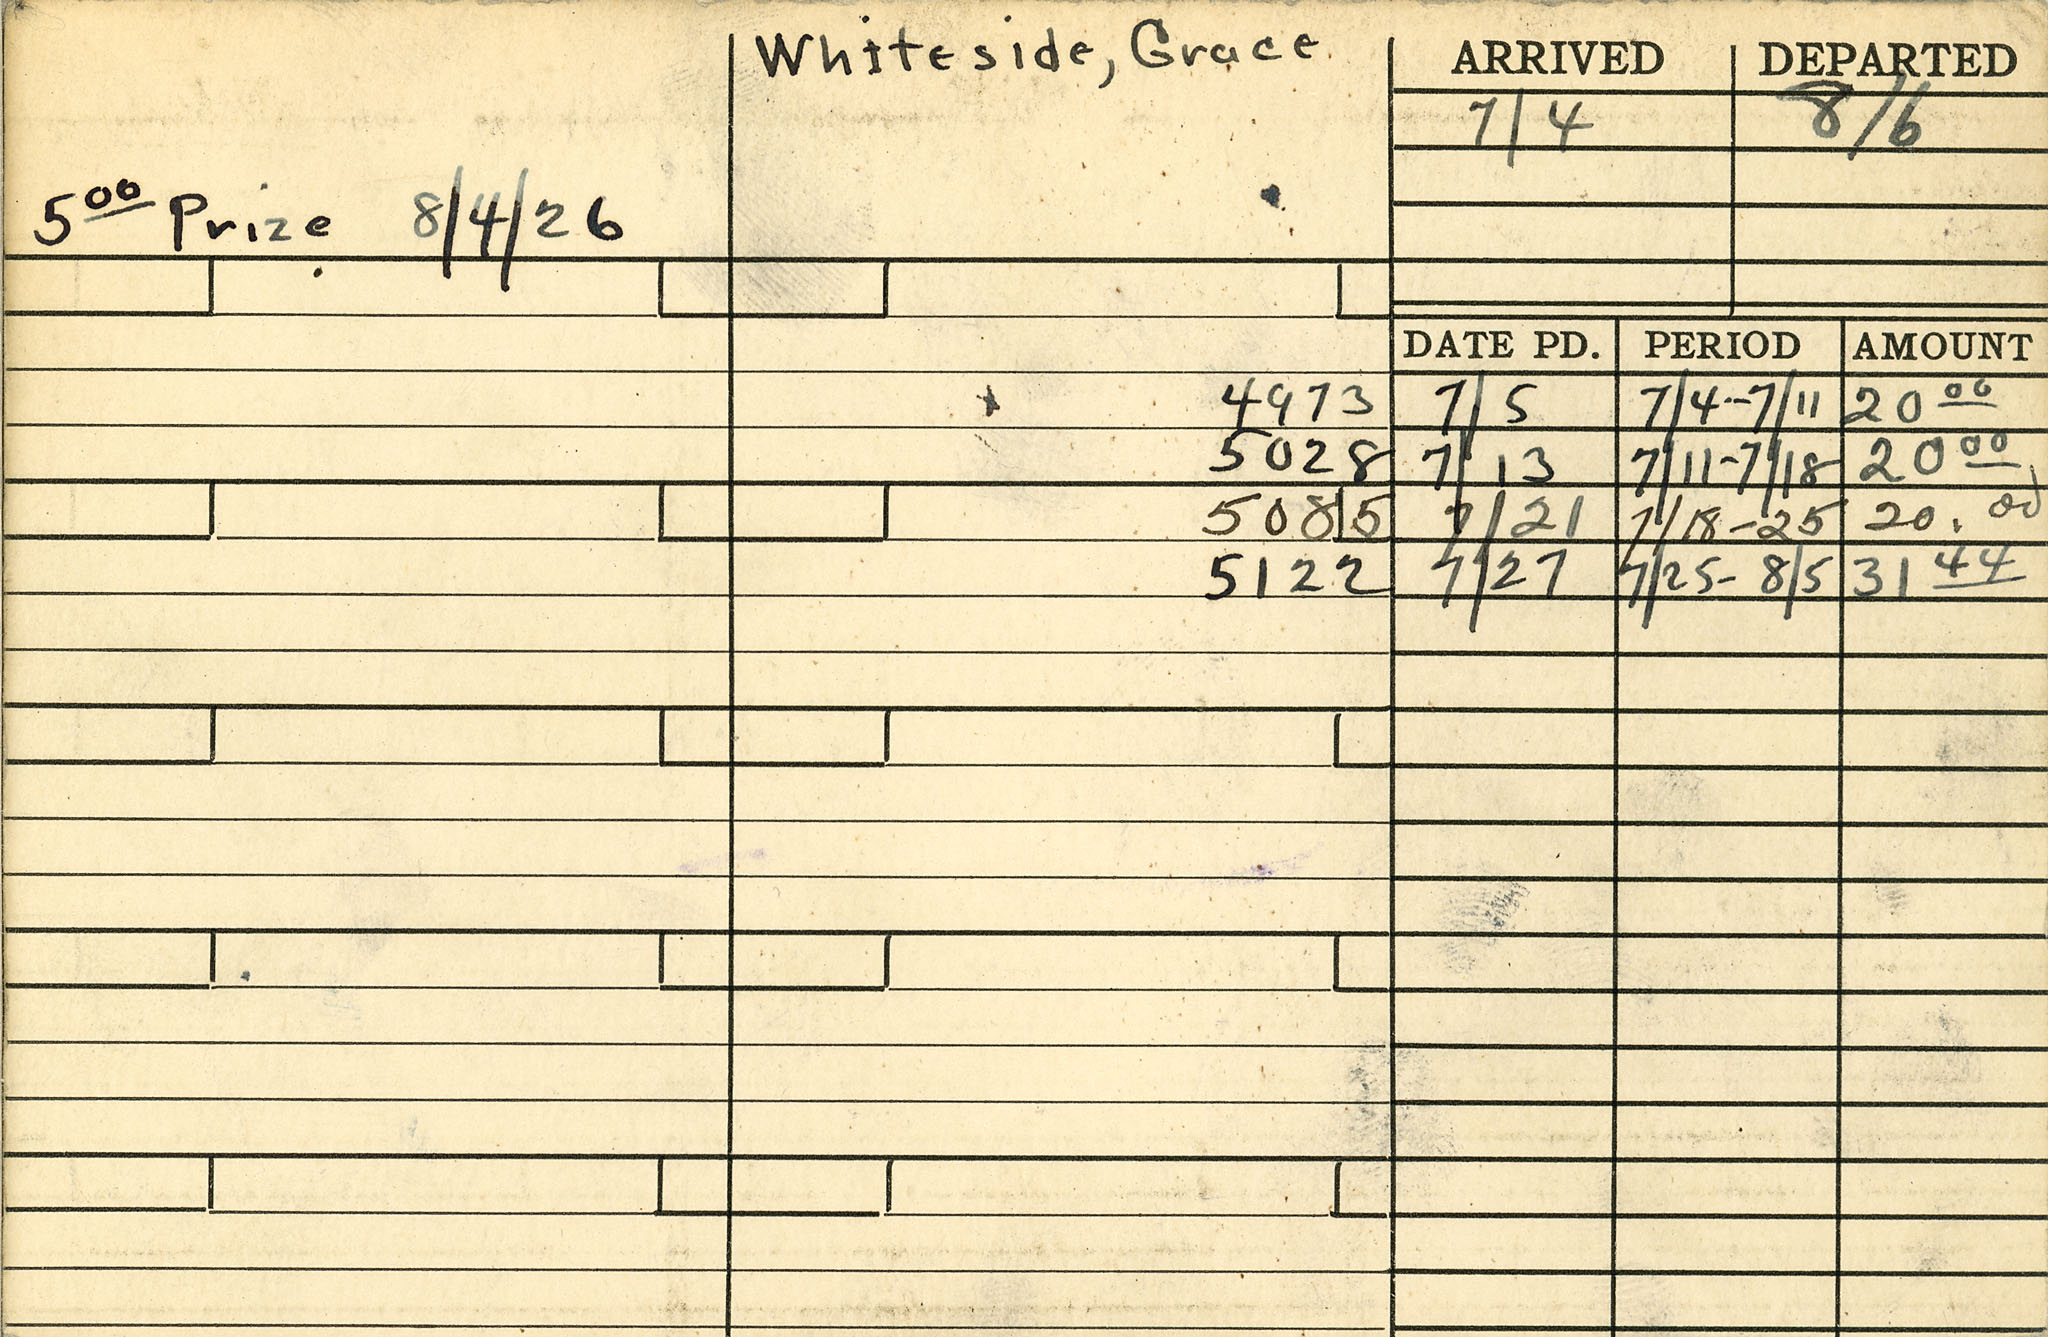 Whiteside, Grace
ARRIVED DEPARTED
7/4 8/6
5 00 Prize 8/4/26
DATE PD. PERIOD AMOUNT
4973 7/5 7/4-7/11 20 00
5028 7/13 7/11-7/18 20 00
5085 7/21 7/18-25 20.00
5122 7/27 7/25-8/5 31 44